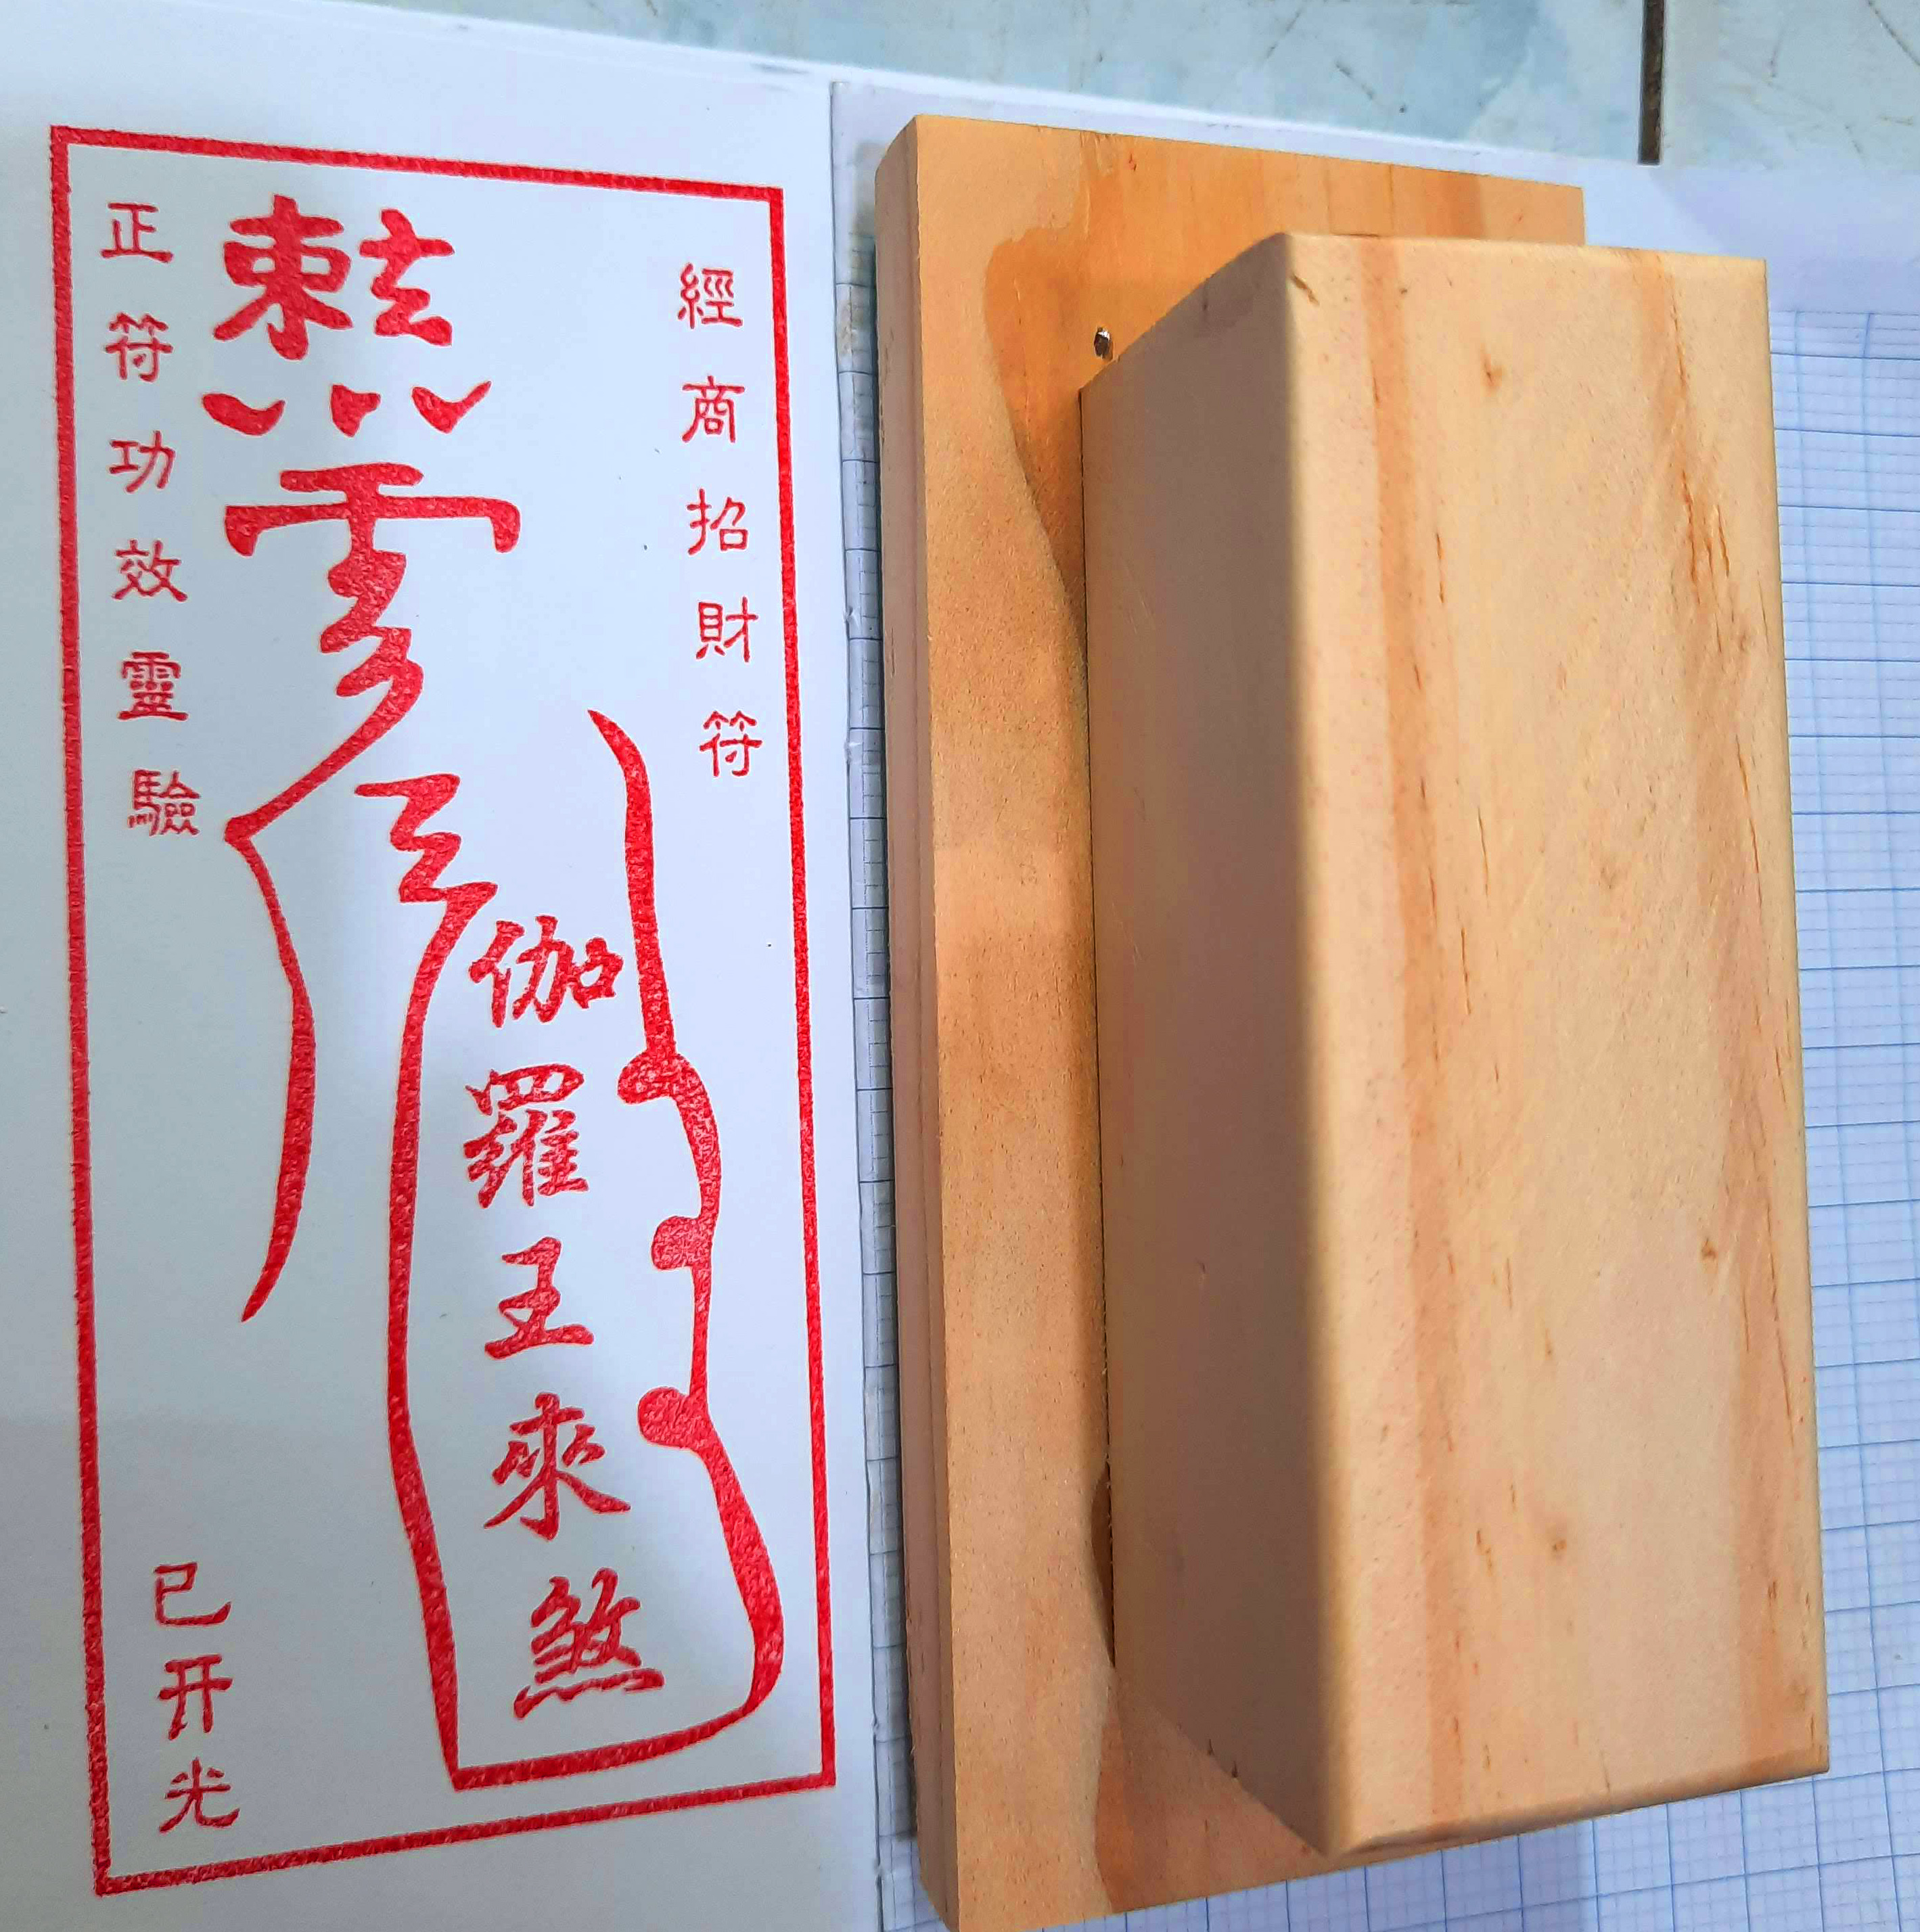 經商招財符
敕令
伽羅王來煞
正符功效靈驗
已开光